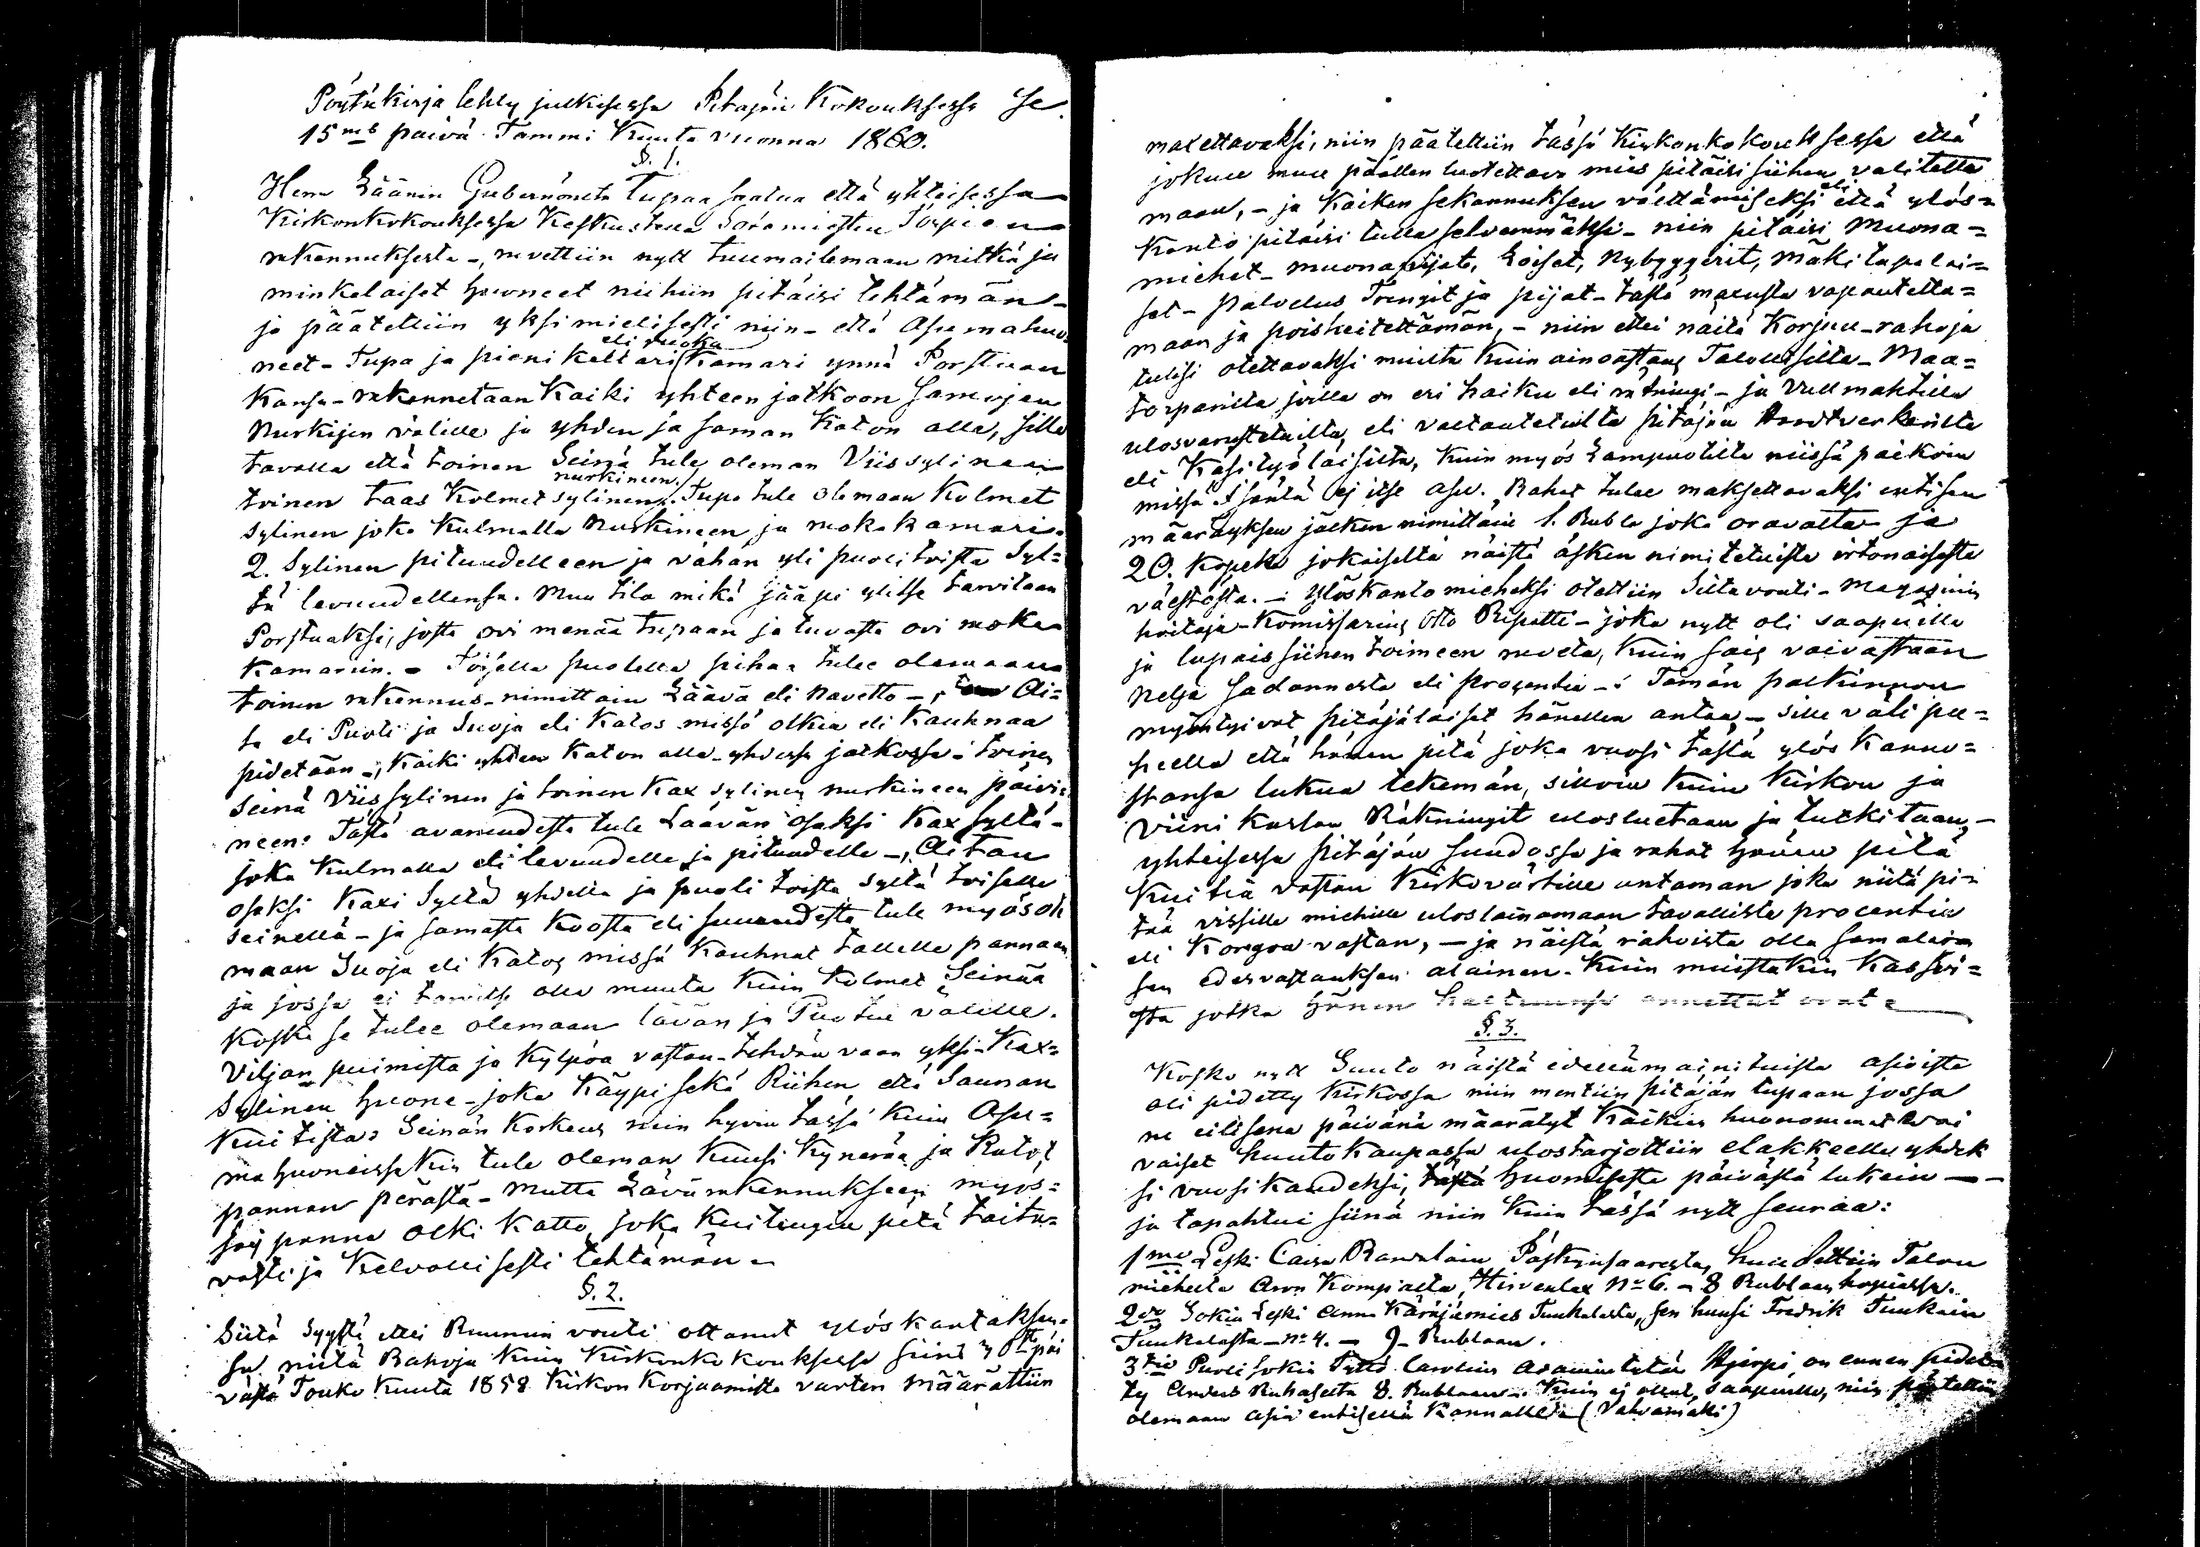 Pöytäkirja tehty julkisessa Pitäjän Kokouksessa se
15ms päivä Tammi Kuuta vuonna 1860.
§. 1.
Herra Läänin Gubernörin lupaa saatua että yhteisessa
Kirkonkokouksessa Keskustella Sotamiesten Torpien
rakennuksesta -, ruvettiin nytt tuumailemaan mitkä ja
minkalaiset huoneet niihin pitäisi tehtämän -
ja päätettiin yksimielisesti niin - että Asumahuo-
eli ruoka
neet - Tupa ja pieni kelttari Kamari ynnä Porstuan
Kansa - rakennetaan Kaiki yhteen jatkoon samojen
Nurkijen välille ja yhden ja saman Katon alla, sillä
tavalla että toinen Seinä tule oleman Viis sylinen
nurkineen.
toinen taas Kolmet sylinen. Tupa tule olemaan Kolmet
sylinen joka Kulmalla Nurkineen ja ruokakamari
2. Sylinen pituudelleen ja vähän yli puoli toista Syl=
tä levuudellensa. Muu tila mikä jääpi ylitse tarvitaan
Porstuaksi, josta ovi menää tupaan ja tuvasta ovi ruoka
Kamariin. - Toisella puolella pihaa tulee olemaan
toinen rakennus - nimittäin Läävä eli Navetto -, Ai=
ta eli Puoti ja Suoja eli Katos missä olkia eli Kauhnaa
pidetään -, Kaiki yhden Katon alla - yhdessä jatkossa - toinen
Seinä Viis sylinen ja toinen Kax sylinen nurkineen päivi=
neen: Tästä avaruudesta tule Läävän osaksi Kax syltä -
joka Kulmalla eli levuudelle ja pituudelle -, Aitan
osaksi Kaxi Syltä yhdella ja puoli toista syltä toisella
seinellä - ja samasta Koosta eli suuruudesta tule myös ole
maan Suoja eli Katos missä Kauhnat tallella pannaan
ja jossa ei tarvitse olla muuta Kuin Kolmet Seinää
Koska se tulee olemaan lävän ja Puotin välille.
Viljan puimista ja Kylpöa vastan - tehdän vaan yksi - Kax=
Sylinen huone - joka Käypi sekä Riihen että Saunan
Kuitista: Seinän Korkeus niin hyvin tässä Kuin Asu=
ma huoneissaKin tule oleman Kuusi Kynerää ja Katot
pannan perästä - Mutta Läväin rakennukseen myös=
saij panna olki Katto, joka Kuitengin pitä taita-
vasti ja Kelvollisesti tehtämän.
§. 2.
Siitä Syystä ettei Ruunun vouti ottanut ylöskantaksen-
sa niitä Rahoja Kuin Kirkonkokouksessa siinä 30stä päi
västä Touko Kuuta 1858 Kirkon Korjaamista varten määrättiin
maxettavaksi, niin päätettiin tässä Kirkonkokouksessa että
jokuu muu päällen luotettava mies pitäisi siihen valitetta
eli
maan, - ja Kaiken sekannuksen vältämiseksi että ylös=
Kanto pitäisi tulla selvemmäksi - niin pitäisi Muona=
miehet - muonapijat, Loiset, Nybyggerit, Mäkitupalai=
set - Palvelus Trengit ja pijat - tästä maxusta vapautetta=
maan ja poisheitettämän, - niin ettei näitä Korjuu - rahoja
tulisi otettavaksi muilta Kuin ainoastans Talollisilta - Maa=
torparilta joilla on eri haiku eli rätningi - ja Vallmahtilla
ulosvarustetuilta, eli valtautetuilta pitäjän Handtverkarilta
eli Käsityöläisiltä, Kuin myös Lampuotilta niissä paikoin
missä Isäntä ej itse asu. Rahat tulee maksettavaksi entisen
määräyksen jälken nimittäin 1. Rubla joka oravalta ja
20. Kopeka jokaiselta näistä äsken nimitetuista irtonaisesta
väestöstä. - Ylöskantomieheksi otettiin Siltavouti - Magasinin
hoitaja - Komissarius Otto Ripatti - joka nytt oli saapuilla
ja lupais siinen toimeen ruveta, Kuin sais vaivastaan
neljä sadannesta eli procentia -: Tämän palkinnon
myöntyivat pitäjäläiset hänellen antaa, - sille väli pu=
heella että hänen pitä joka vuosi tästä ylös Kanno=
stansa lukua tekemän, silloin Kuin Kirkon ja
Viini Kassan Räkningit ulosluetaan ja tutkitaan, -
yhteisessa pitäjän suudossa ja rahat hänen pitä
Kuitia vastan Kirkovärtille antaman joka niitä pi=
tää vissille miehille uloslainamaan tavallista procentia
eli Korgoa vastan, - ja näistä rahoista olla samalai
sen edesvastauksen alainen. Kuin muistakin Kassoi=
sta jotka hänen haltuunsa annettut ovat
§. 3.
Koska nytt Suuto näistä edellämainituista asioista
oli pidetty Kirkossa niin mentiin pitäjän tupaan jossa
ne eilisenä päivänä määrätyt Kaikin huonommat Wai
vaiset huutokaupassa ulostarjottiin elakkeelle yhdek
si vuosikaudeksi, huomisesta päivästä lukein -
ja tapahtui siinä niin Kuin tässä nytt seuraa:
1mo Leski Caisa Randelain Päskynsaaresta, huudettiin Talon
mieheltä Aron Kompialta, Hirvenlax No 6. - 8 Rublaan hopiassa.
2do Sokia Leski Anna Käräjämies Tuukalasta, sen huusi Fredrik Tuukain
Tuukalasta - No 4. - 9 - Rublaan.
3tio Puoli sokia Tyttö Carolina Adamintytär Hjerpi, on ennen pidet
ty Anders Ruhaselta 8. Rublaan - Kuin ej ollut saapuilla, niin päätettiin
olemaan asia entisellä Kannallaan (Vahvamäki)